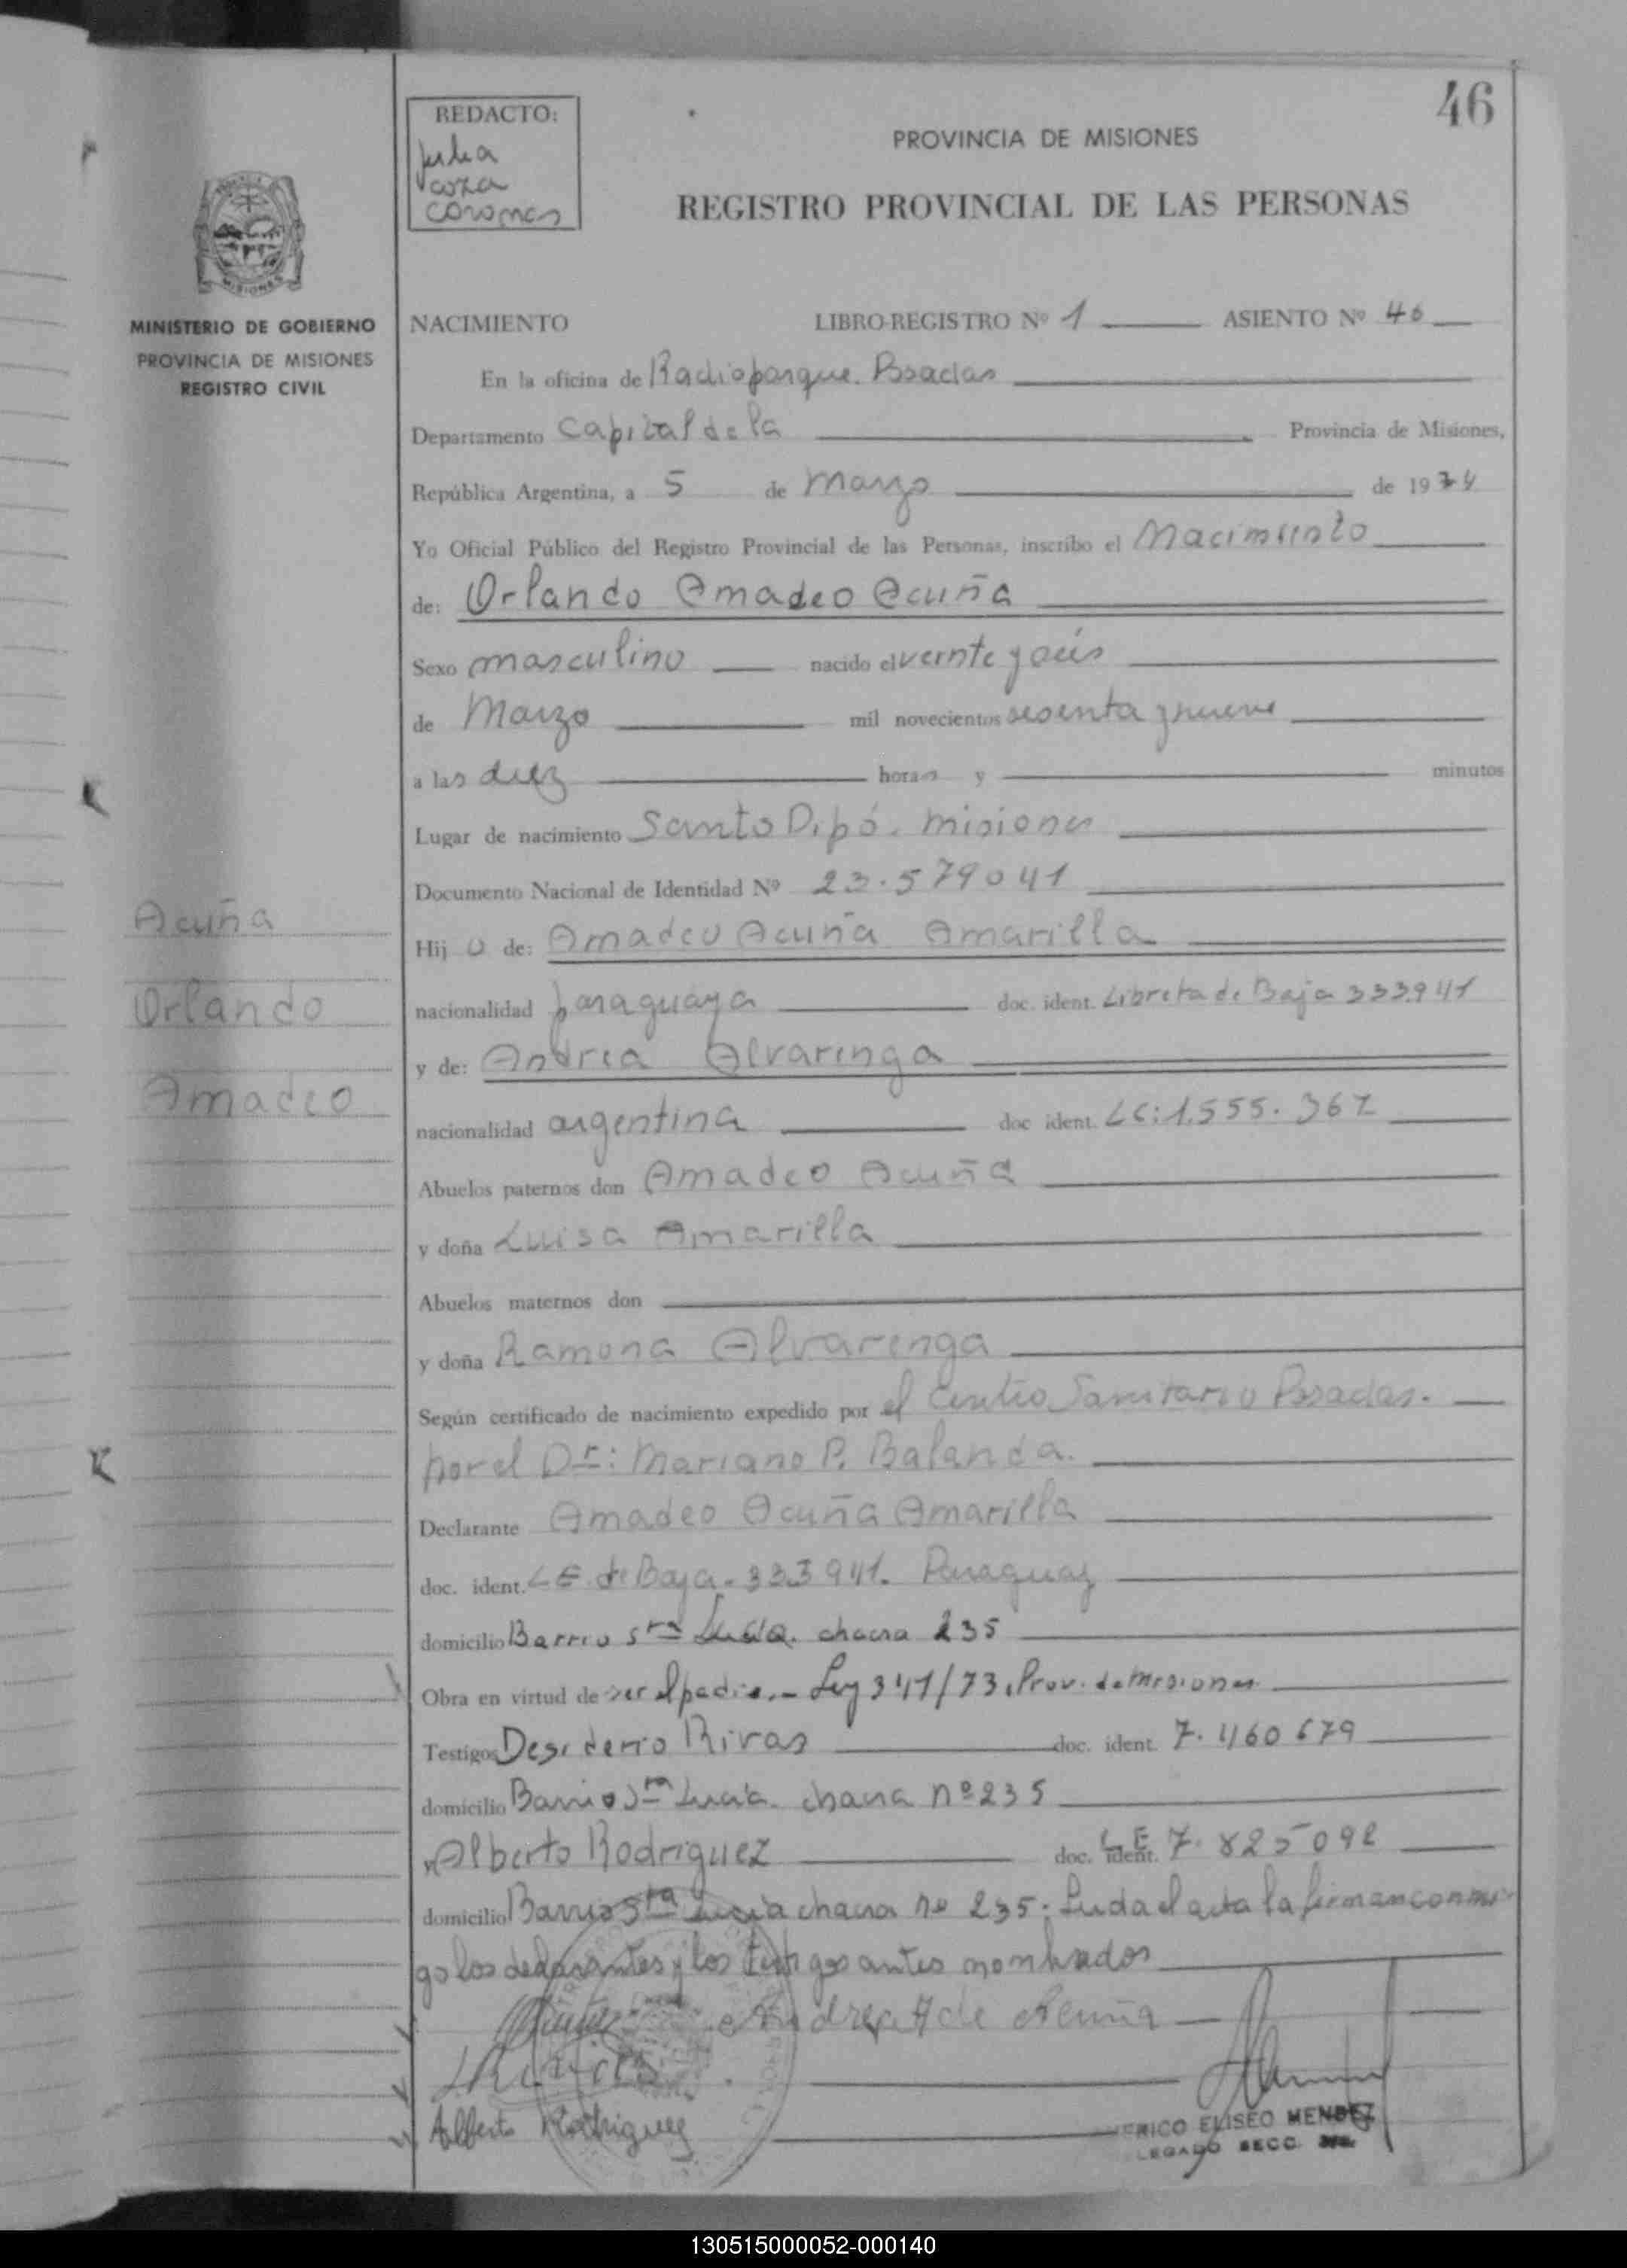 46
REDACTO:
Julia
coza
coroman
PROVINCIA DE MISIONES
REGISTRO PROVINCIAL DE LAS PERSONAS
MISIONES
MINISTERIO DE GOBIERNO
PROVINCIA DE MISIONES
REGISTRO CIVIL
NACIMIENTO LIBRO-REGISTRO Nº 1 ASIENTO Nº 46
En la oficina de Radioparque. Posadas
Departamento Capital de la Provincia de Misiones,
República Argentina, a 5 de Marzo de 1974
Yo Oficial Público del Registro Provincial de las Personas, inscribo el Nacimiento
de: Orlando Amadeo Acuña
Sexo masculino nacido el veinte y seis
de Marzo mil novecientos sesenta y nueve
a las diez horas y minutos
Lugar de nacimiento Santo Pipó. Misiones
Documento Nacional de Identidad Nº 23.579041
Acuña
Orlando
Amadeo
Hij o de: Amadeo Acuña Amarilla
nacionalidad paraguaya doc. ident. Libreta de Baja 333941
y de: Andrea Alvarenga
nacionalidad argentina doc ident. LC: 1.555.367
Abuelos paternos don Amadeo Acuña
y doña Luisa Amarilla
Abuelos maternos don
y doña Ramona Alvarenga
Según certificado de nacimiento expedido por el Centro Sanitario Posadas.
por el Dr: Mariano P. Balanda.
Declarante Amadeo Acuña Amarilla
doc. ident. LE. de Baja. 333941. Paraguay
domicilio Barrio Sta Lucia. chacra 235
Obra en virtud de ser el padre.- Ley 341/73. Prov. de Misiones
Testigos Desiderio Rivas doc. ident. 7.460679
domicilio Barrio Sta Lucia. chacra nº 235
y Alberto Rodriguez doc. ident. L.E. 7.825092
domicilio Barrio Sta Lucia chacra nº 235. Leida el acta la firman conmi-
go los declarantes y los testigos antes nombrados
Andrea A de Acuña
Alberto Rodriguez
ERICO ELISEO MENDEZ
LEGADO SECC.
130515000052-000140